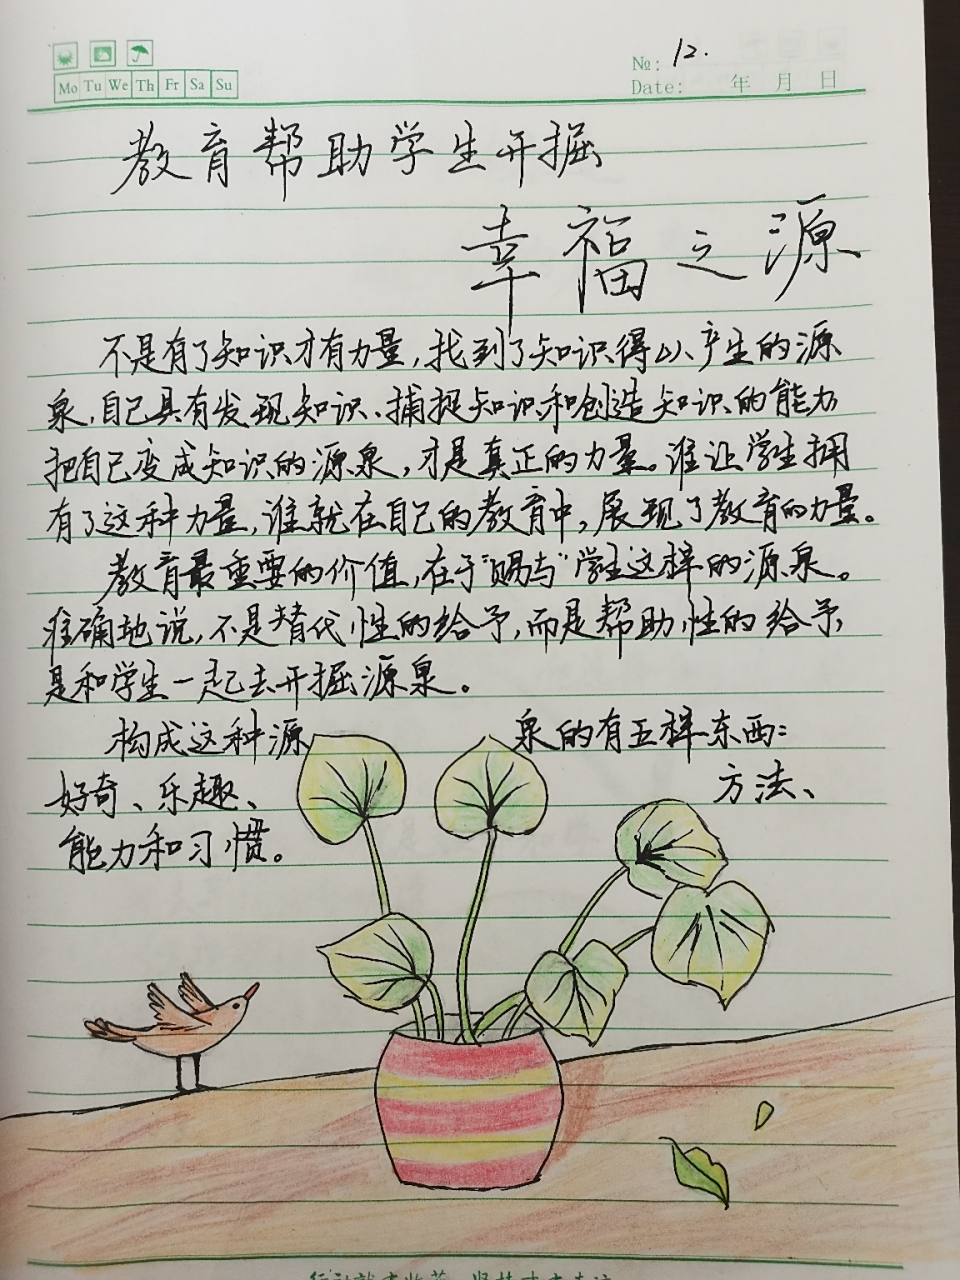 Mo Tu We Th Fr Sa Su
№: 12.
Date: 年 月 日
教育帮助学生开掘
幸福之源
不是有了知识才有力量,找到了知识得以产生的源
泉,自己具有发现知识、捕捉知识和创造知识的能力,
把自己变成知识的源泉,才是真正的力量。谁让学生拥
有了这种力量,谁就在自己的教育中,展现了教育的力量。
教育最重要的价值,在于“赐与”学生这样的源泉。
准确地说,不是替代性的给予,而是帮助性的给予,
是和学生一起去开掘源泉。
构成这种源泉的有五样东西:
好奇、乐趣、方法、
能力和习惯。